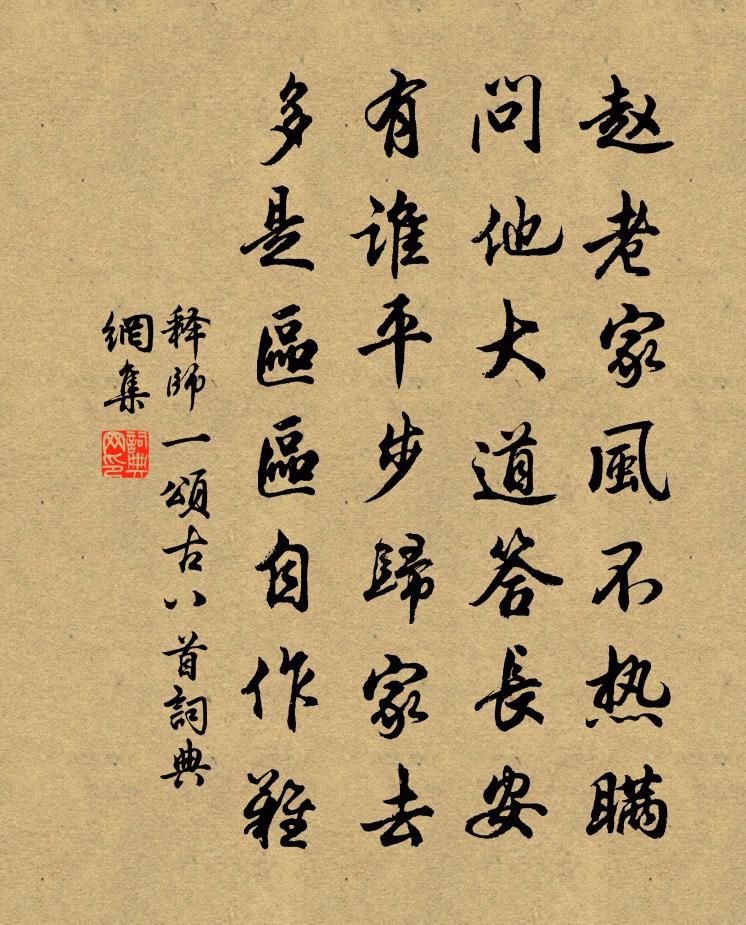 赵老家風不热瞞
問他大道答長安
有谁平步歸家去
多是區區自作難
释師一頌古八首詞典
網集
詞典
网印